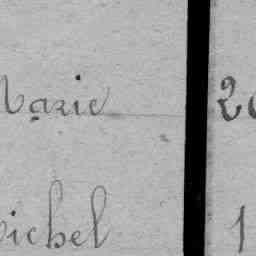 Marie 20
Michel 1